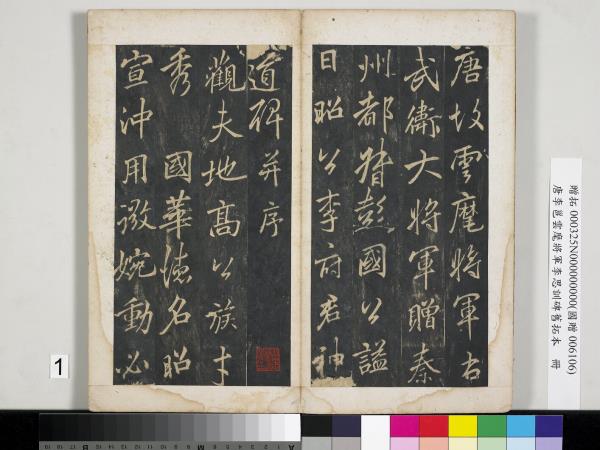 唐故雲麾將軍右
武衛大將軍贈秦
州都督彭國公謚
曰昭公李府君神
道碑并序
觀夫地高公族才
秀國華德名昭
宣沖用微婉動必
贈拓 000325N000000000(國贈 006106)
唐李邕雲麾將軍李思訓碑舊拓本 冊
1